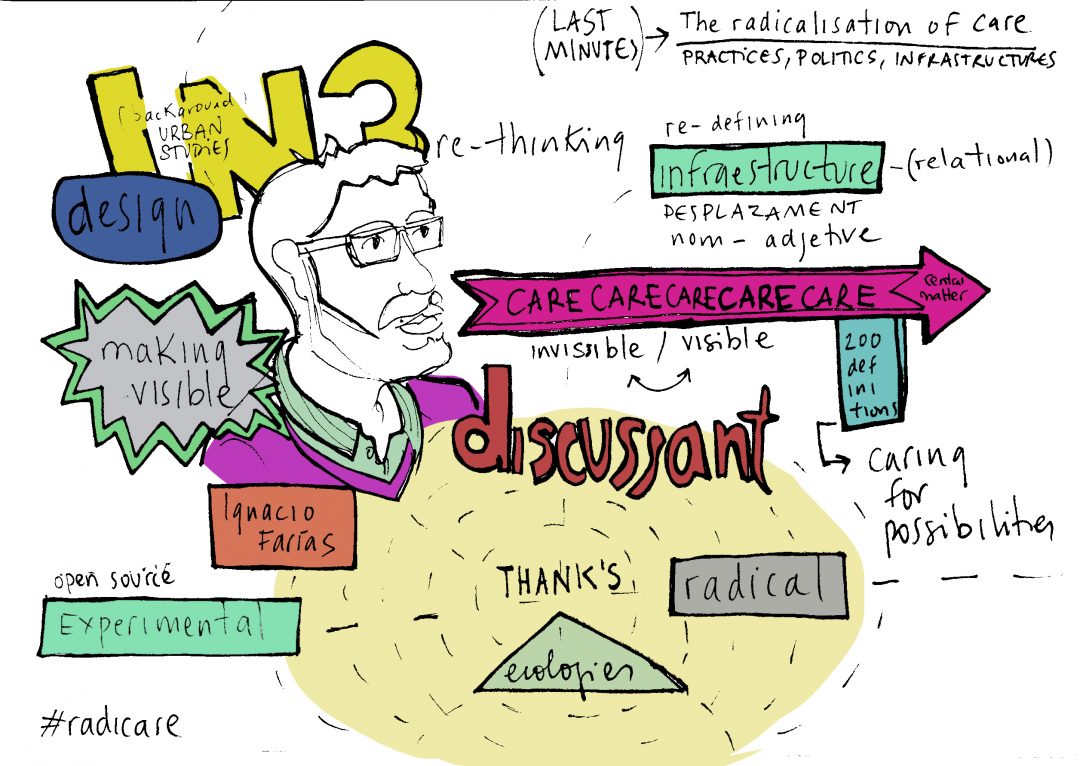 (LAST MINUTES) → The radicalisation of care
PRACTICES, POLITICS, INFRASTRUCTURES
IN3
(background)
URBAN
STUDIES
design
re-thinking
re-defining
infraestructure - (relational)
DESPLAZAMENT
nom - adjetive
CARE CARE CARE CARE CARE
central
matter
invissible / visible
200
def
ini
tions
caring
for
possibilities
making
visible
discussant
Ignacio
Farías
open source
Experimental
THANK'S
radical
ecologies
#radicare